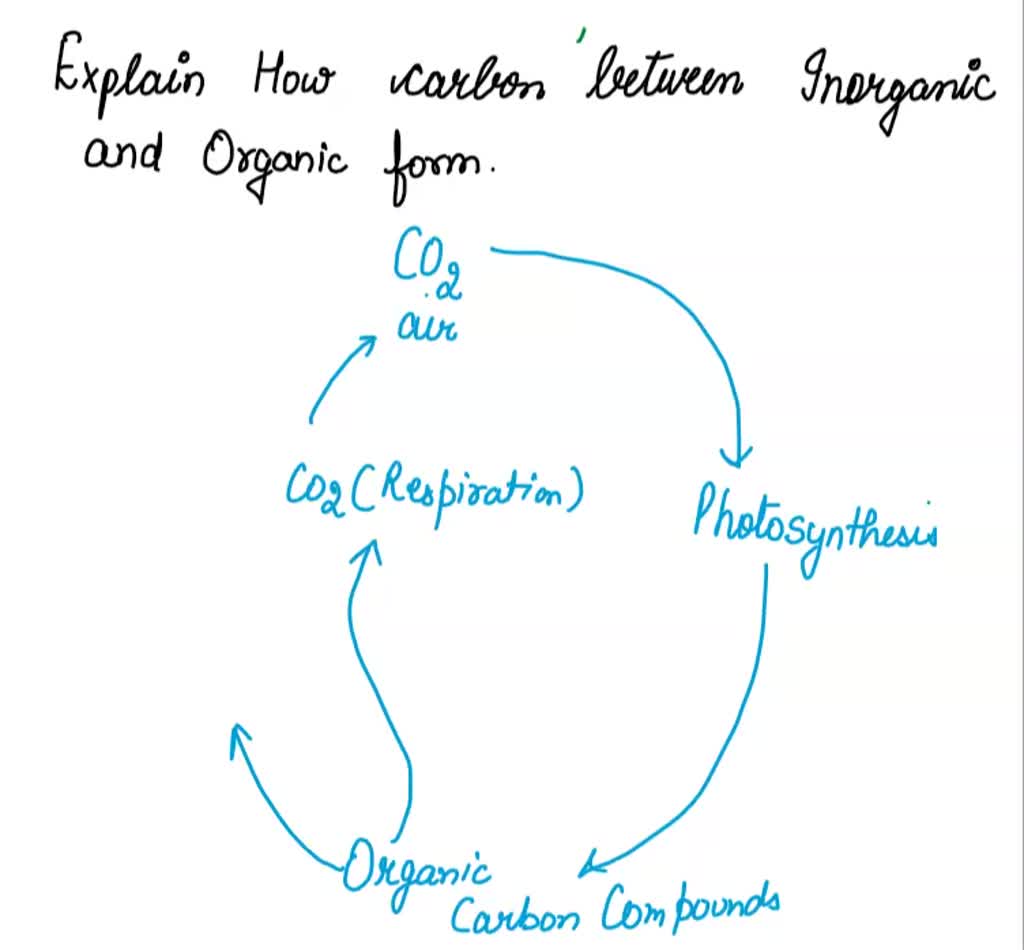 Explain How carbon between Inorganic
and Organic form.
CO2
air
CO2 (Respiration)
Photosynthesis
Organic
Carbon Compounds